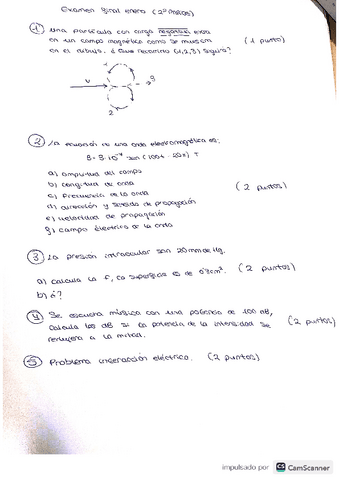 Examen final enero (2º parcial)
① Una partícula con carga negativa entra
en un campo magnético como se muestra (1 punto)
en el dibujo. ¿Qué recorrido (1,2,3) seguirá?
1
v
3
2
② La ecuación de una onda electromagnética es:
sen (100t - 20x) T
a) amplitud del campo
b) longitud de onda
c) frecuencia de la onda (2 puntos)
d) dirección y sentido de propagación
e) velocidad de propagación
g) campo eléctrico de la onda
③ La presión intraocular son 20 mm de Hg.
a) Calcula la F, la superficie es de cm². (2 puntos)
b) ?
④ Se escucha música con una potencia de 100 dB,
calcula los dB si la potencia de la intensidad se (2 puntos)
redujera a la mitad.
⑤ Problema interacción eléctrica. (2 puntos)
impulsado por CS CamScanner